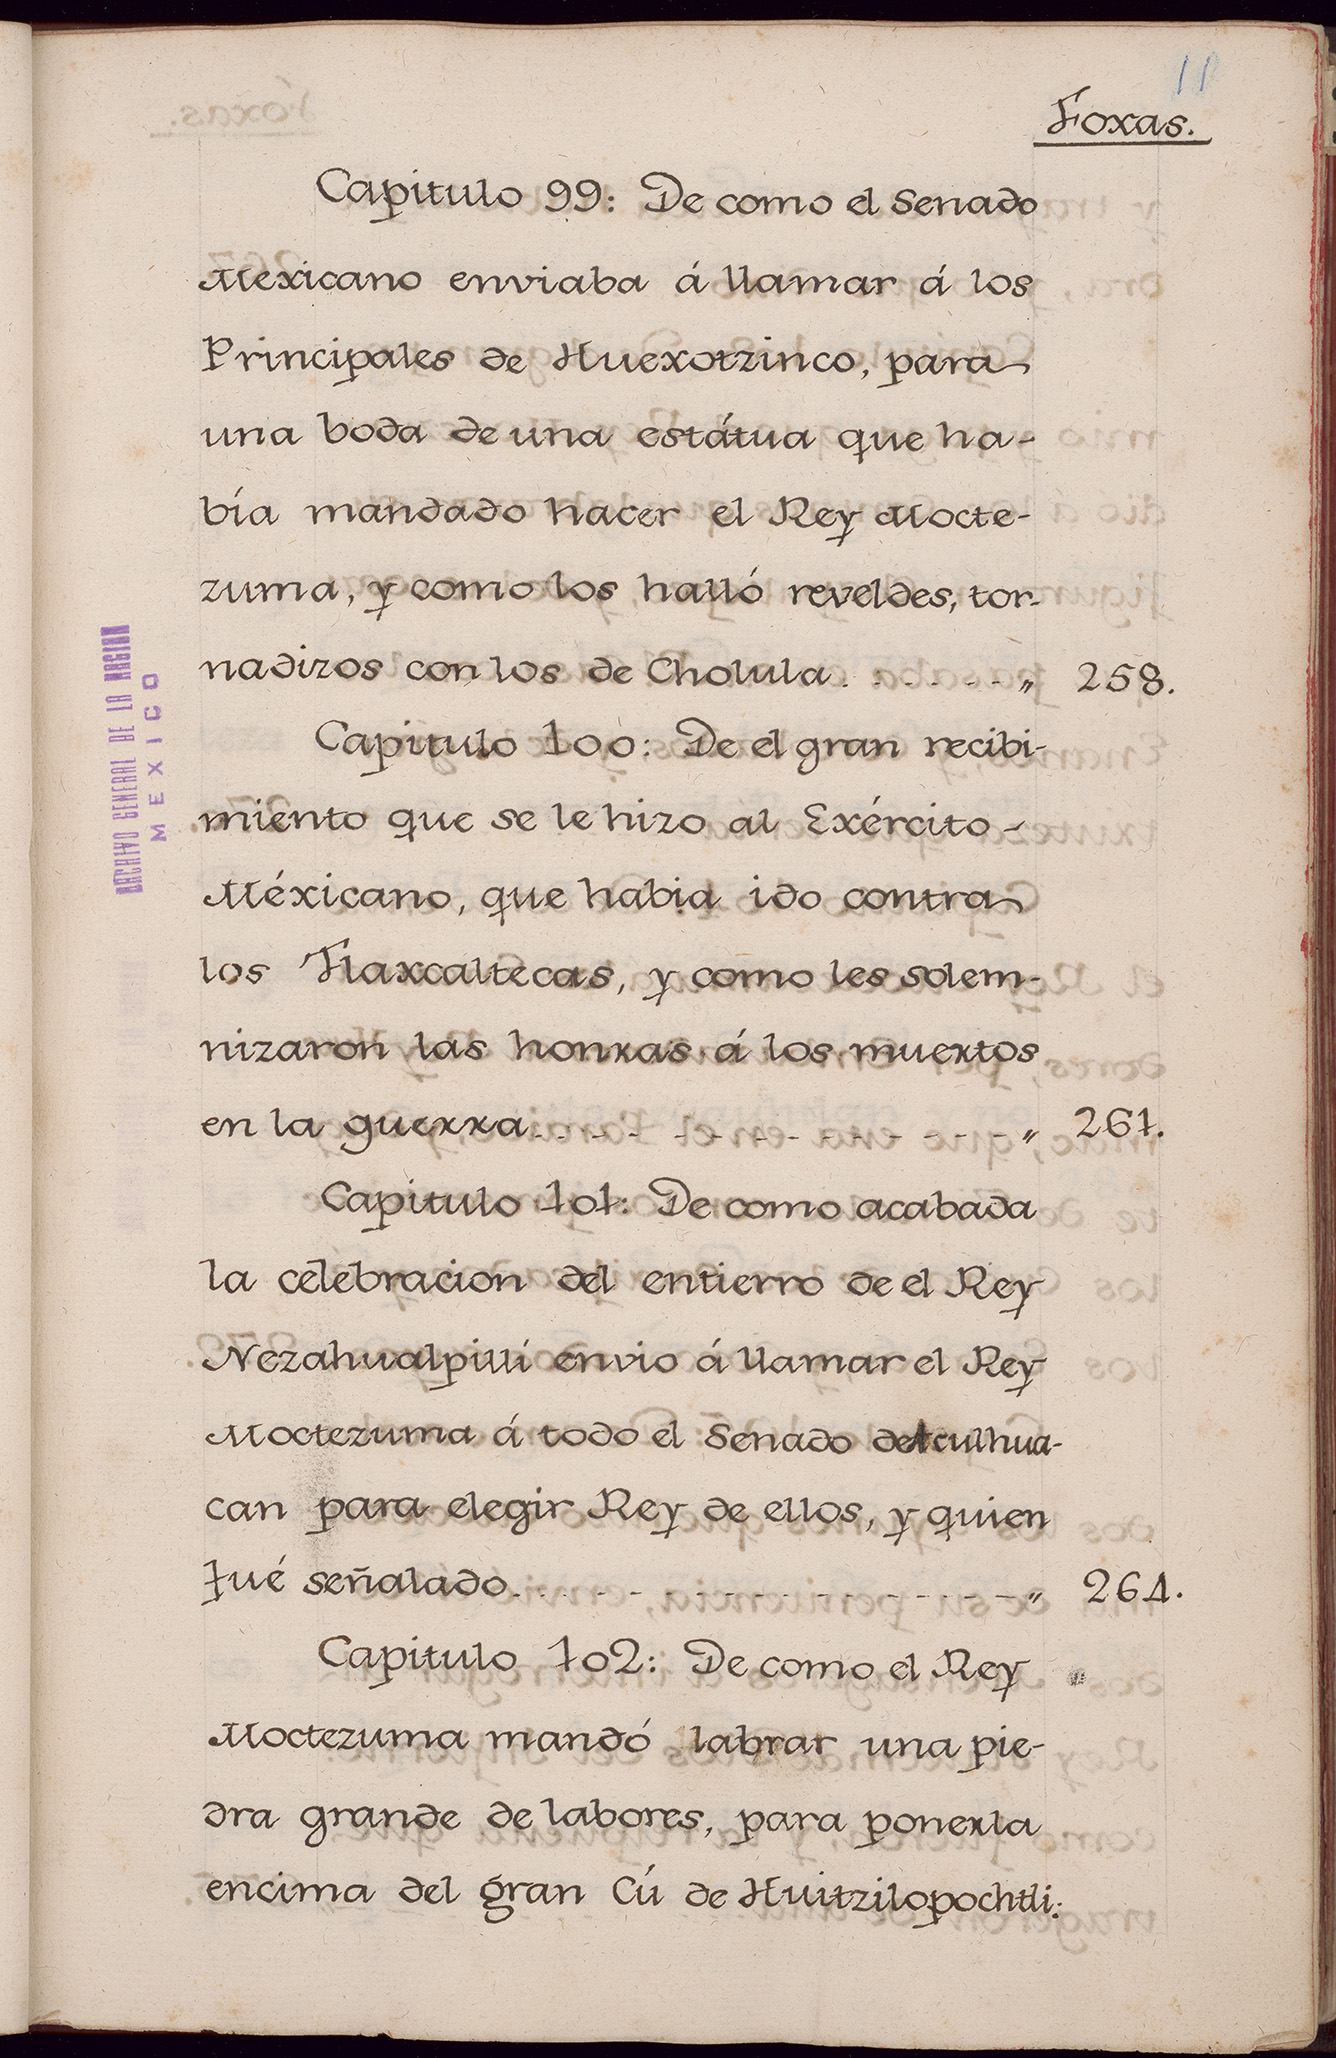 11
Foxas.
Capitulo 99: De como el Senado
Mexicano enviaba á llamar á los
Principales de Huexotzinco, para
una boda de una estátua que ha-
bía mandado hacer el Rey Mocte-
zuma, y como los halló reveldes, tor-
nadizos con los de Cholula. . . . . . . „ 258.
Capitulo 100: De el gran recibi-
miento que se le hizo al Exército -
Méxicano, que habia ido contra
los Tlaxcaltecas, y como les solem-
nizaron las honras á los muertos
en la guerra. . . . - - - - - - - - „ 261.
Capitulo 101: De como acabada
la celebracion del entierro de el Rey
Nezahualpilli envio á llamar el Rey
Moctezuma á todo el Senado de
can para elegir Rey de ellos, y quien
fué señalado. . . . - - - - - - - - - - „ 264.
Capitulo 102: De como el Rey
Moctezuma mandó labrar una pie-
dra grande de labores, para ponerla
encima del gran Cú de Huitzilopochtli:
ARCHIVO GENERAL DE LA NACION
MEXICO